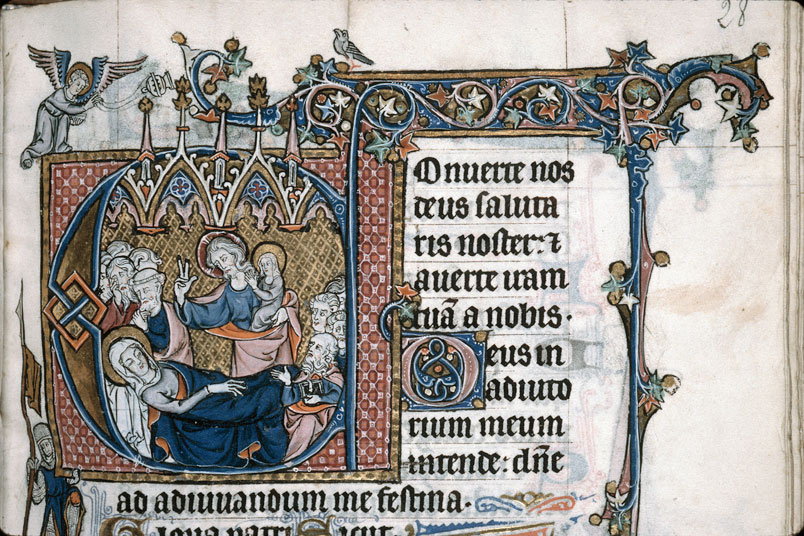 28
Onuerte nos
deus saluta
ris noster: ⁊
auerte iram
tuã a nobis.
Deus in
adiuto
rium meum
intende: dñe
ad adiuuandum me festina.
Gloria patri Sicut.